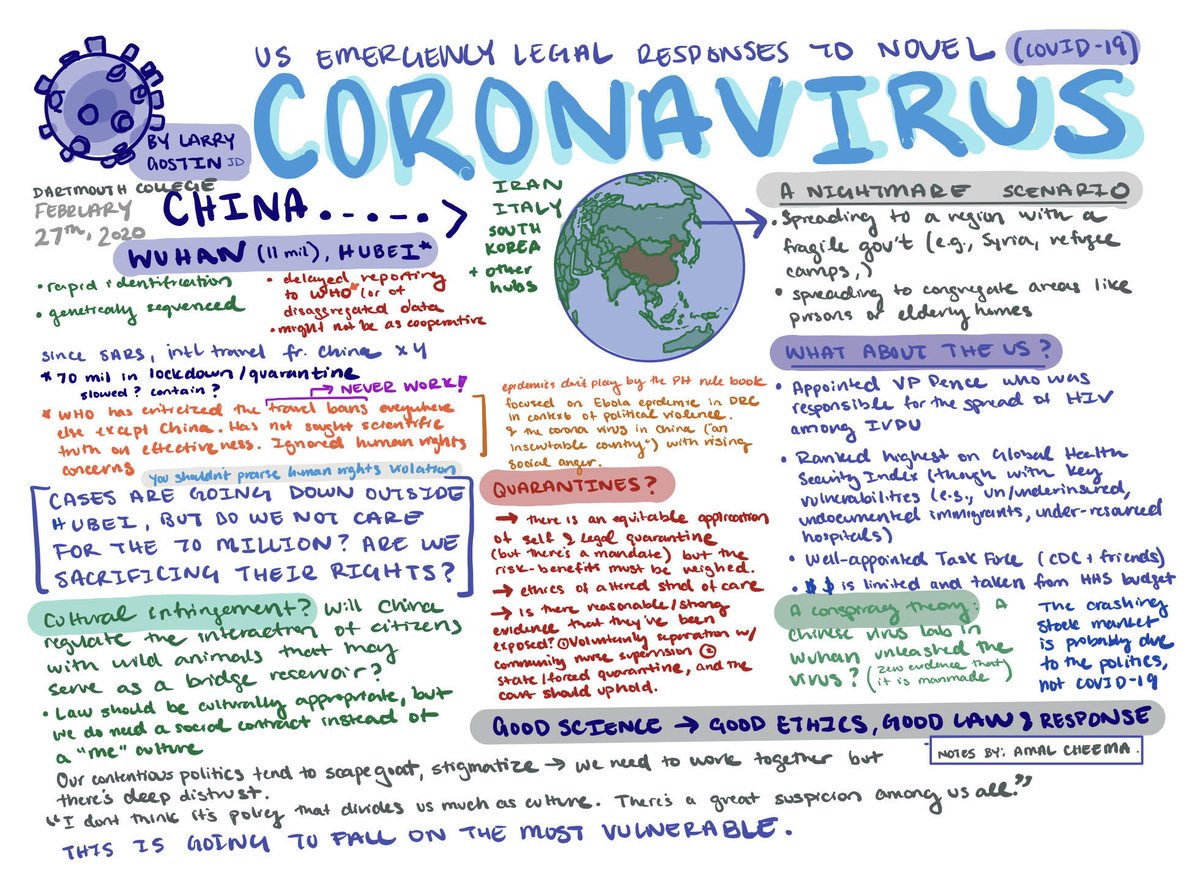 US EMERGENCY LEGAL RESPONSES TO NOVEL (COVID-19)
CORONAVIRUS
BY LARRY
GOSTIN JD
DARTMOUTH COLLEGE
FEBRUARY
27th, 2020
CHINA......>
WUHAN (11 mil), HUBEI*
• rapid identification
• genetically sequenced
• delayed reporting
to WHO (or of
disaggregated data
• might not be as cooperative
since SARS, intl travel fr. China x4
* 70 mil in lockdown/quarantine
slowed? contain?
→ NEVER WORK!
* WHO has criticized the travel bans everywhere
else except China. Has not sought scientific
truth on effectiveness. Ignored human rights
concerns
you shouldn't praise human rights violation
CASES ARE GOING DOWN OUTSIDE
HUBEI, BUT DO WE NOT CARE
FOR THE 70 MILLION? ARE WE
SACRIFICING THEIR RIGHTS?
Cultural infringement? Will China
regulate the interaction of citizens
with wild animals that may
serve as a bridge reservoir?
• Law should be culturally appropriate, but
we do need a social contract instead of
a "me" culture
IRAN
ITALY
SOUTH
KOREA
+ other
hubs
epidemics don't play by the PH rule book
focused on Ebola epidemic in DRC
in context of political violence.
& the corona virus in China ("an
inscrutable country") with rising
social anger.
QUARANTINES?
→ there is an equitable application
of self & legal quarantine
(but there's a mandate) but the
risk-benefits must be weighed.
→ ethics of altered stnd of care
→ Is there reasonable/strong
evidence that they've been
exposed? ① Voluntarily separation w/
community nurse supervision ②
state/forced quarantine, and the
court should uphold.
A NIGHTMARE SCENARIO
• Spreading to a region with a
fragile gov't (e.g., Syria, refugee
camps,)
• spreading to congregate areas like
prisons or elderly homes
WHAT ABOUT THE US?
• Appointed VP Pence who was
responsible for the spread of HIV
among IVDU
• Ranked highest on Global Health
Security Index (though with key
vulnerabilities (e.g., un/underinsured,
undocumented immigrants, under-resourced
hospitals)
• Well-appointed Task Force (CDC + friends)
• $$ is limited and taken from HHS budget
A conspiracy theory: A
Chinese virus lab in
Wuhan unleashed the
virus? (zero evidence that
it is manmade)
The crashing
stock market
is probably due
to the politics,
not COVID-19
GOOD SCIENCE → GOOD ETHICS, GOOD LAW & RESPONSE
NOTES BY: AMAL CHEEMA.
Our contentious politics tend to scapegoat, stigmatize → we need to work together but
there's deep distrust.
"I dont think it's policy that divides us much as culture. There's a great suspicion among us all."
THIS IS GOING TO FALL ON THE MOST VULNERABLE.